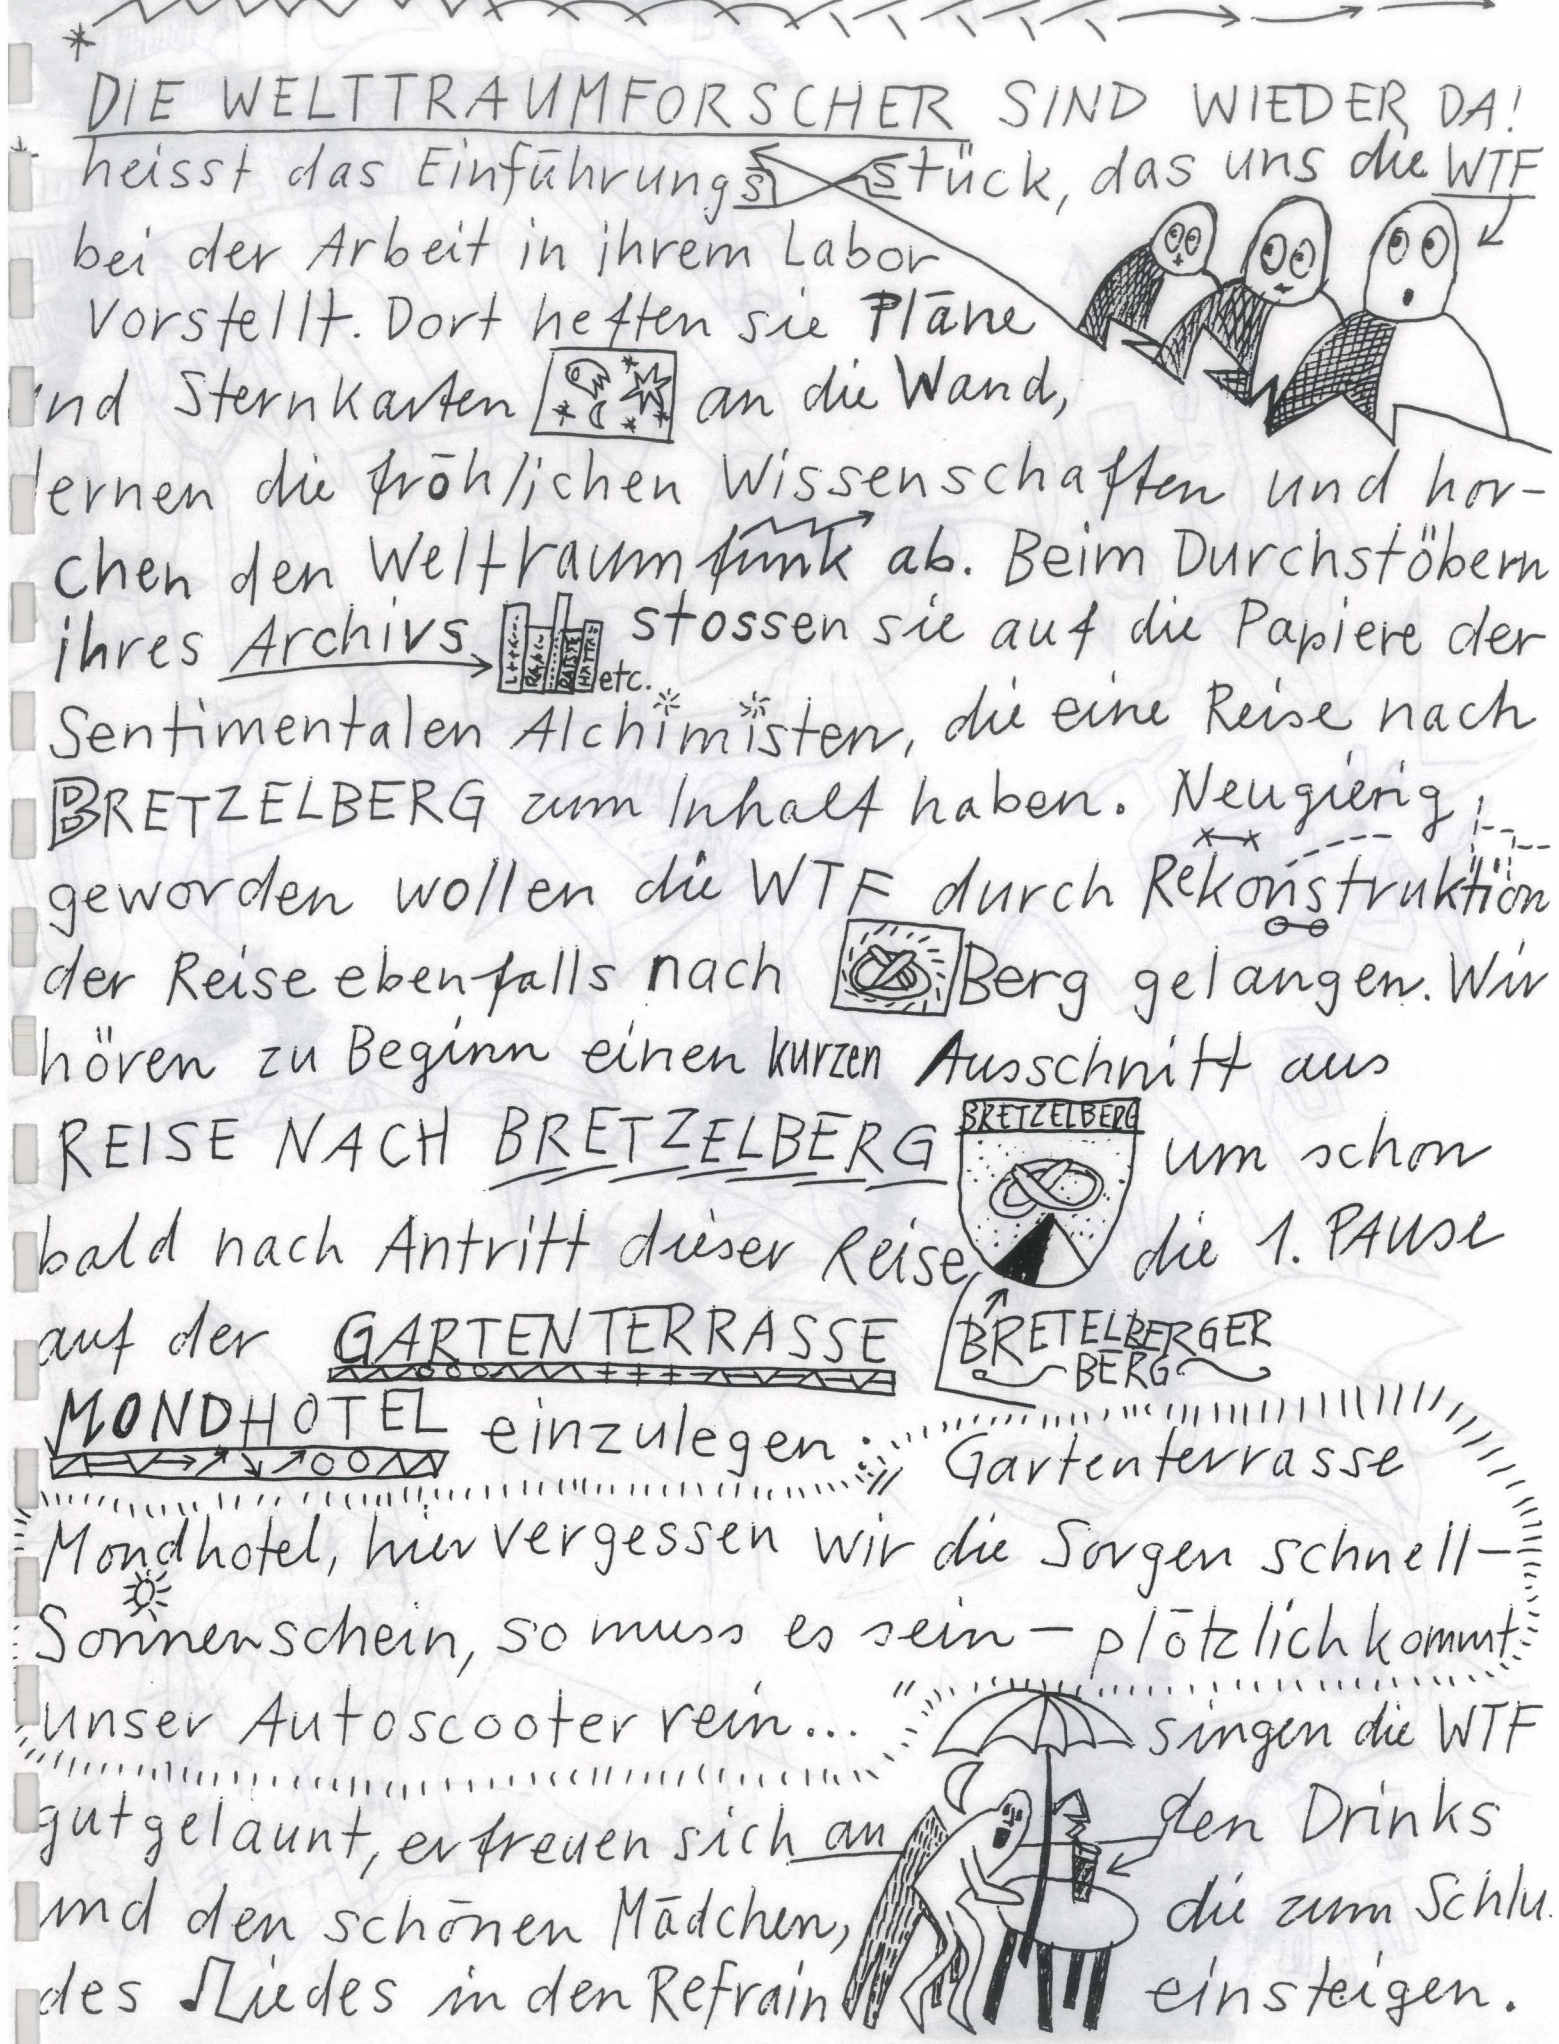 DIE WELTTRAUMFORSCHER SIND WIEDER DA!
heisst das Einführungsstück, das uns die WTF
bei der Arbeit in ihrem Labor
vorstellt. Dort heften sie Pläne
und Sternkarten an die Wand,
lernen die fröhlichen Wissenschaften und hor-
chen den Weltraumfunk ab. Beim Durchstöbern
ihres Archivs etc. stossen sie auf die Papiere der
Sentimentalen Alchimisten, die eine Reise nach
BRETZELBERG zum Inhalt haben. Neugierig
geworden wollen die WTF durch Rekonstruktion
der Reise ebenfalls nach Berg gelangen. Wir
hören zu Beginn einen kurzen Ausschnitt aus
REISE NACH BRETZELBERG BRETZELBERG um schon
bald nach Antritt dieser Reise die 1. PAUSE
auf der GARTENTERRASSE BRETELBERGER
BERG
MONDHOTEL einzulegen: "Gartenterrasse
Mondhotel, hier vergessen wir die Sorgen schnell-
Sonnenschein, so muss es sein - plötzlich kommt
unser Autoscooter rein..." singen die WTF
gutgelaunt, erfreuen sich an den Drinks
und den schönen Mädchen, die zum Schlu
des Liedes in den Refrain einsteigen.